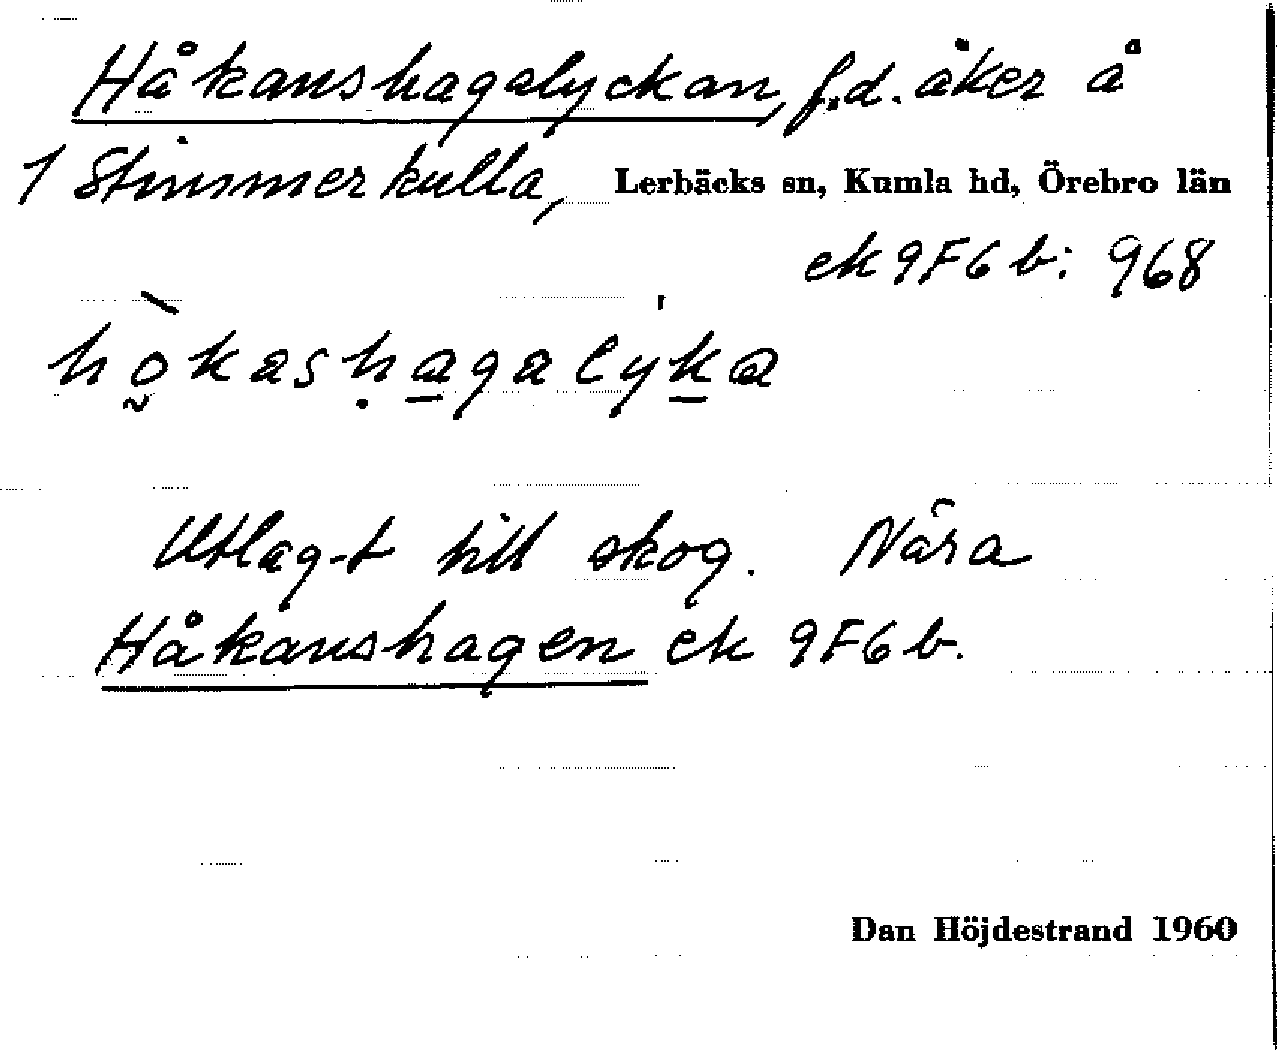 Håkanshagalyckan, f.d. åker å
1 Stimmerkulla, Lerbäcks sn, Kumla hd, Örebro län
ek 9F6b: 968
hò̰kasḥa̱galýḵa
Utlag-t till skog. Nära
Håkanshagen ek 9F6b.
Dan Höjdestrand 1960